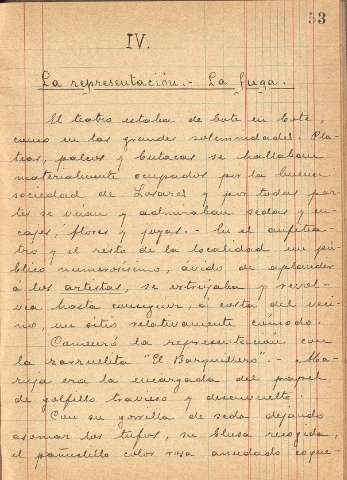 53
IV.
La representación.- La fuga.
El teatro estaba de bote en bote,
como en las grandes solemnidades. Pla-
teas, palcos y butacas se hallaban
materialmente ocupados por la buena
sociedad de Losares y por todas par-
tes se veían y admiraban sedas y en-
cajes, flores y joyas.- En el anfitea-
tro y el resto de la localidad un pú-
blico numerosísimo, ávido de aplaudir
á los artistas, se estrujaba y revol-
vía hasta conseguir, á costa del veci-
no, un sitio relativamente cómodo.
Comenzó la representación con
la zarzuelita "El Barquillero".- Ma-
ruja era la encargada del papel
de golfillo travieso y desenvuelto.
Con su gorrilla de seda dejando
asomar los tufos, su blusa recogida,
el pañuelito color rosa anudado coque-